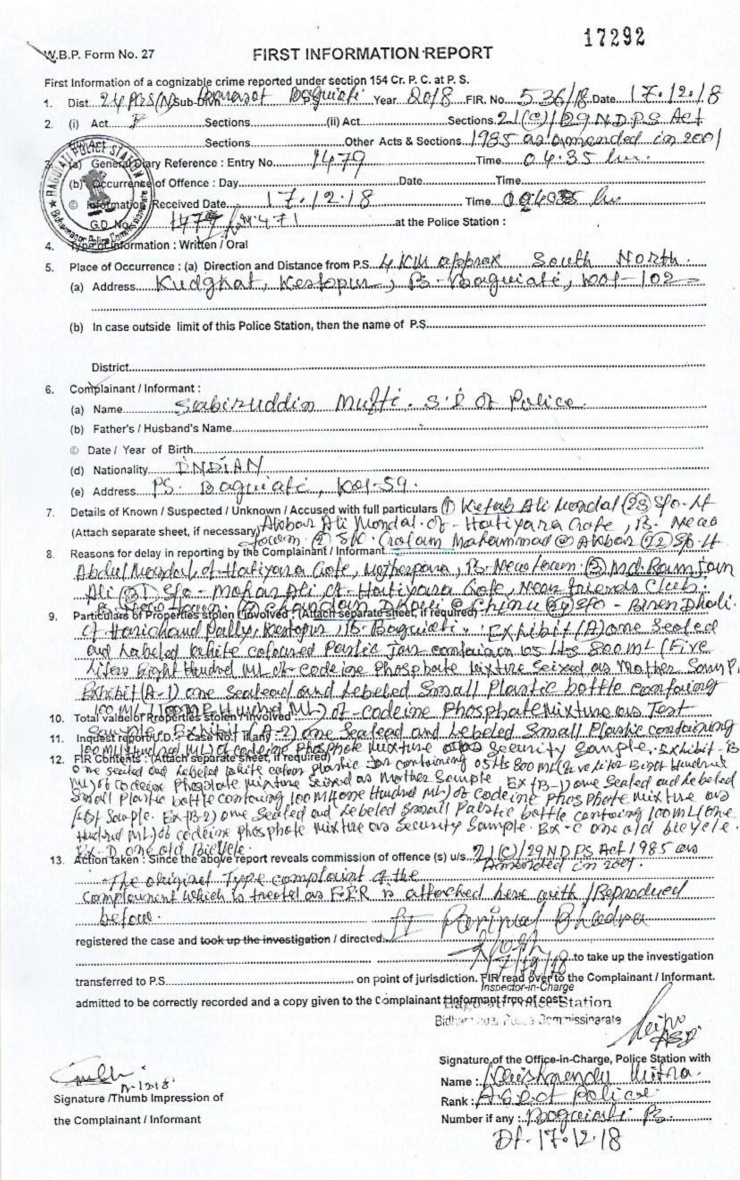 17292
W.B.P. Form No. 27
FIRST INFORMATION REPORT
First Information of a cognizable crime reported under section 154 Cr. P. C. at P. S.
1. Dist. 24 PGS(N) Sub-Divn Barasat Baguiati Year 2018 FIR. No. 536/18 Date 17.12.18
2. (i) Act Sections (ii) Act Sections 21(C)/29 N.D.P.S Act
Sections Other Acts & Sections 1985 as amended in 2001
(a) General Diary Reference : Entry No. 1479 Time 04.35 hrs.
(b) Occurrence of Offence : Day Date Time
© Information Received Date 17.12.18 Time hrs
G.D. No. at the Police Station :
BAGUIATI POLICE STATION
Bidhannagar Police Commissionerate
4. Type of Information : Written / Oral
5. Place of Occurrence : (a) Direction and Distance from P.S. 4 KM approx South North.
(a) Address Kudghat, Kestopur, PS- Baguiati, Kol-102
(b) In case outside limit of this Police Station, then the name of P.S.
District
6. Complainant / Informant :
(a) Name Sabiruddin Mufti. S.I. of Police
(b) Father's / Husband's Name
© Date / Year of Birth
(d) Nationality INDIAN
(e) Address PS. Baguiati, Kol-59.
7. Details of Known / Suspected / Unknown / Accused with full particulars (1) Ketab Ali Mondal (23) S/o- Lt
(Attach separate sheet, if necessary) Akbar Ali Mondal. of - Hatiyara Gate, PS- New
Town (2) Sk. Golam Mahammad @ Akbar (22) S/o- Lt
8. Reasons for delay in reporting by the Complainant / Informant
Abdul of Hatiyara Gote, PS- New Town (3) Md Ramjan
Ali S/o - Ali, of- Hatiyara Gote, Near Friends Club,
9. Particulars of Properties stolen (involved ? (Attach separate sheet, if required) :
PS- New Town. @ Chinu S/o - Biren Dhali.
of Harichand Pally, Kestopur, PS- Baguiati. Exhibit (A) one Sealed
and Labeled White coloured Plastic Jar containing 05 Lts 800 ML (Five
liters Eight Hundred ML of codeine Phosphate Mixture Seized as Mother Samp.
Exhibit (A-1) one Sealead and Labeled Small Plastic bottle contaning
100 ML (One Hundred ML) of - codeine Phosphate Mixture as Test
10. Total value of Properties stolen / Involved
Sample. Exhibit (A-2) one Sealead and Labeled Small Plastic containing
11. Inquest report/U.D. Case No. if any
100 ML (Hundred ML) of codeine Phosphate mixture as Security Sample. Exhibit-B
12. FIR Contents : (Attach separate sheet, if required)
one sealed and Labeled white colour plastic Jar containing 05 Lts 800 ml (Five liter Eight Hundred
ML) of codeine Phosphate mixture seized as Mother Sample Ex (B-1) one Sealed and Labeled
Small Plastic bottle contaning 100 ML (one Hundred ML) of Codeine Phosphate mixture as
Test Sample. Ex (B-2) one Sealed and Labeled Small Palstic bottle contaning 100 ML (one
Hundred ML) of codeine phosphate mixture as Security Sample. Ex- C one old bicycle.
Ex-D one old Bicycle.
13. Action taken : Since the above report reveals commission of offence (s) u/s. 21(C)/29 NDPS Act 1985 as
Amended in 2001.
The original Type complaint of the
Complainent which is treated as FIR is attached here with / Reproduced
before.
registered the case and took up the investigation / directed
to take up the investigation
transferred to P.S. on point of jurisdiction. FIR read over to the Complainant / Informant.
admitted to be correctly recorded and a copy given to the Complainant Informant free of cost.
Inspector-in-Charge
Baguiati Police Station
Bidhannagar Police Commissinarate
ASI
Signature of the Office-in-Charge, Police Station with
Name : Krishnendu Mitra.
Rank : A.S.I. of Police
Number if any : Baguiati PS.
Dt- 17.12.18
Signature /Thumb Impression of
the Complainant / Informant